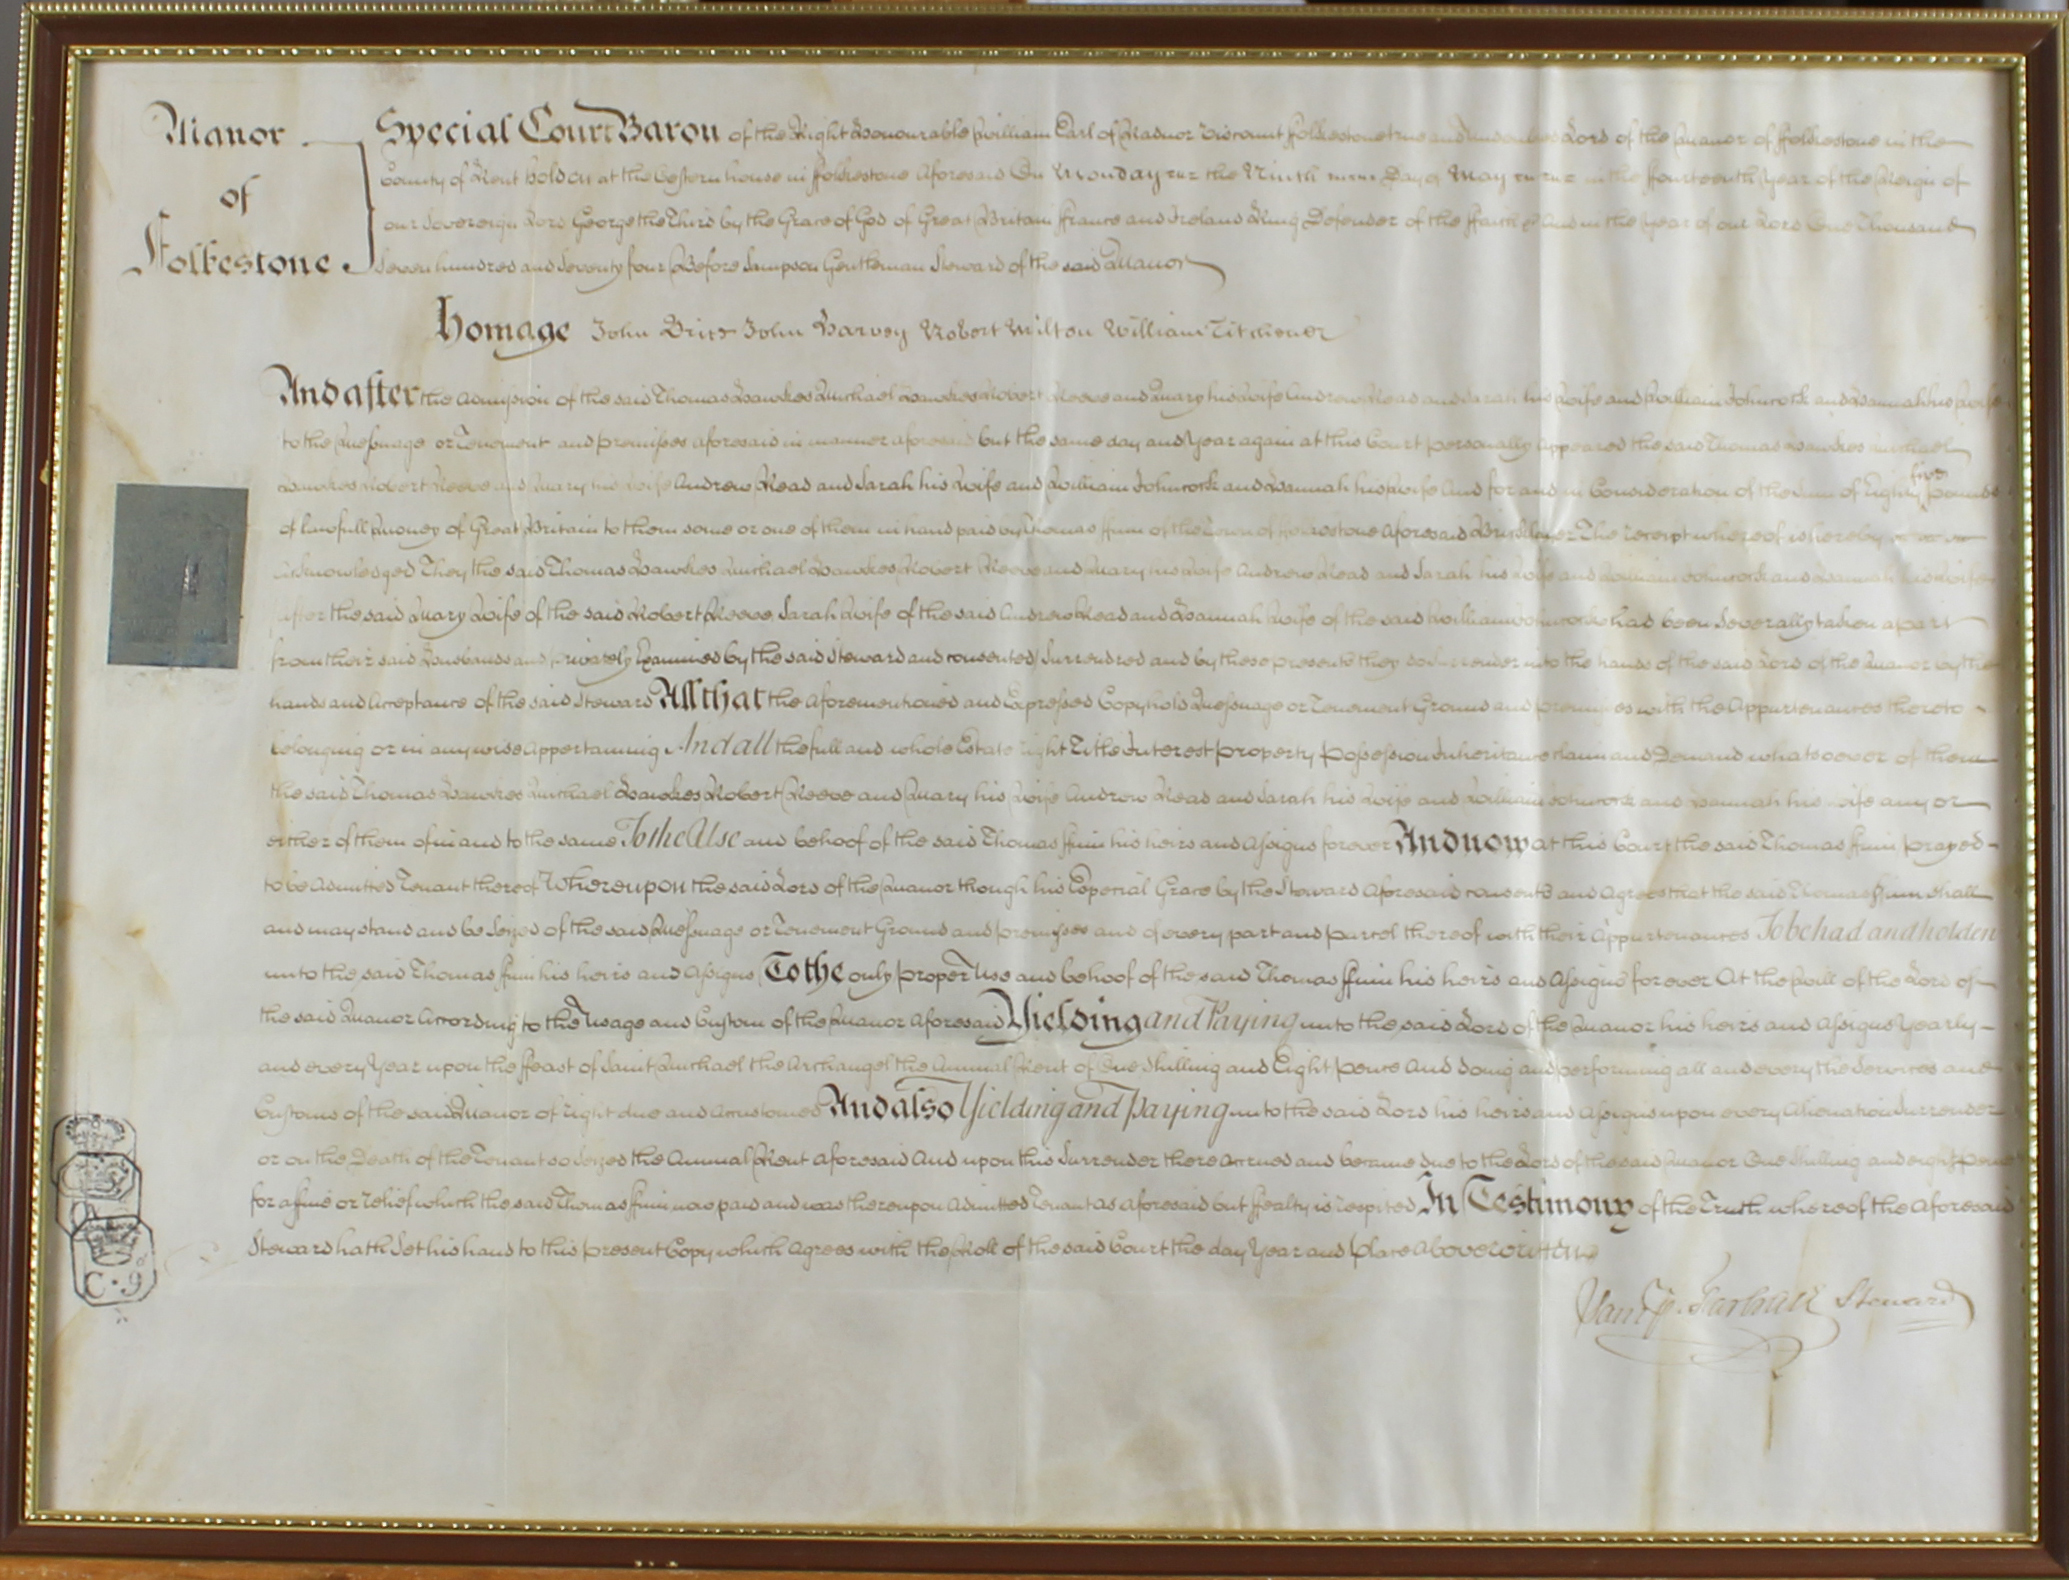 Manor of Folkestone
Special Court Baron of the Right Honourable William Earl of Radnor Viscount ffolkestone true and undoubted Lord of the Manor of ffolkestone in the
County of Kent holden at the Custom house in ffolkestone Aforesaid On Monday the Ninth Day of May in the ffourteenth Year of the Reign of
our Sovereign Lord George the Third by the Grace of God of Great Britain ffrance and Ireland King Defender of the ffaith & And in the year of our Lord One Thousand
Seven hundred and Seventy four Before Sampson Gentleman Steward of the said Manor
Homage John John Harvey Robert Milton William Titchener
And after the Admission of the said Thomas Hawkes Michael Hawkes Robert Reeve and Mary his Wife Andrew Read and Sarah his Wife and William Johncock and Hannah his Wife
to the Messuage or Tenement and premisses aforesaid in manner aforesaid but the same day and Year again at this Court personally Appeared the said Thomas Hawkes Michael
Hawkes Robert Reeve and Mary his Wife Andrew Read and Sarah his Wife and William Johncock and Hannah his Wife And for and in Consideration of the Sum of Eighty five pounds
of lawfull Money of Great Britain to them some or one of them in hand paid by Thomas ffinn of the Town of ffolkestone Aforesaid Bricklayer The receipt whereof is hereby
Acknowledged They the said Thomas Hawkes Michael Hawkes Robert Reeve and Mary his Wife Andrew Read and Sarah his Wife and William Johncock and Hannah his Wife
after the said Mary Wife of the said Robert Reeve Sarah Wife of the said Andrew Read and Hannah Wife of the said William Johncock had been Severally taken apart
from their said Husbands and privately Examined by the said Steward and consented Surrendred and by these presents they do Surrender into the hands of the said Lord of the Manor by the
hands and Acceptance of the said Steward All that the Aforementioned and Expressed Copyhold Messuage or Tenement Ground and premises with the Appurtenances thereto
belonging or in any wise Appertaining And all the full and whole Estate right Title Interest property possession Inheritance claim and Demand whatsoever of them
the said Thomas Hawkes Michael Hawkes Robert Reeve and Mary his Wife Andrew Read and Sarah his Wife and William Johncock and Hannah his Wife any or
either of them of in and to the same To the Use and behoof of the said Thomas ffinn his heirs and Assigns forever And now at this Court the said Thomas ffinn prayed
to be Admitted Tenant thereof Whereupon the said Lord of the Manor though his Especial Grace by the Steward Aforesaid consents and Agrees that the said Thomas ffinn shall
and may stand and be Seized of the said Messuage or Tenement Ground and premisses and of every part and parcel thereof with their Appurtenances To be had and holden
unto the said Thomas ffinn his heirs and Assigns To the only proper Use and behoof of the said Thomas ffinn his heirs and Assigns forever At the Will of the Lord of
the said Manor According to the Usage and Custom of the Manor Aforesaid Yielding and Paying unto the said Lord of the Manor his heirs and Assigns Yearly
and every Year upon the ffeast of Saint Michael the Archangel the Annual Rent of One Shilling and Eight pence And doing and performing all and every the Services and
Customs of the said Manor of right due and Accustomed And also Yielding and Paying unto the said Lord his heirs and Assigns upon every Alienation Surrender
or on the Death of the Tenant so Seized the Annual Rent aforesaid And upon this Surrender there accrued and became due to the Lord of the said Manor One Shilling and eight pence
for a ffine or relief which the said Thomas ffinn now paid and was thereupon Admitted Tenant as aforesaid but ffealty is respited In Testimony of the Truth whereof the Aforesaid
Steward hath Set his hand to this present Copy which Agrees with the Roll of the said Court the day Year and place Above written
Samp. Farbrace Steward
C·9